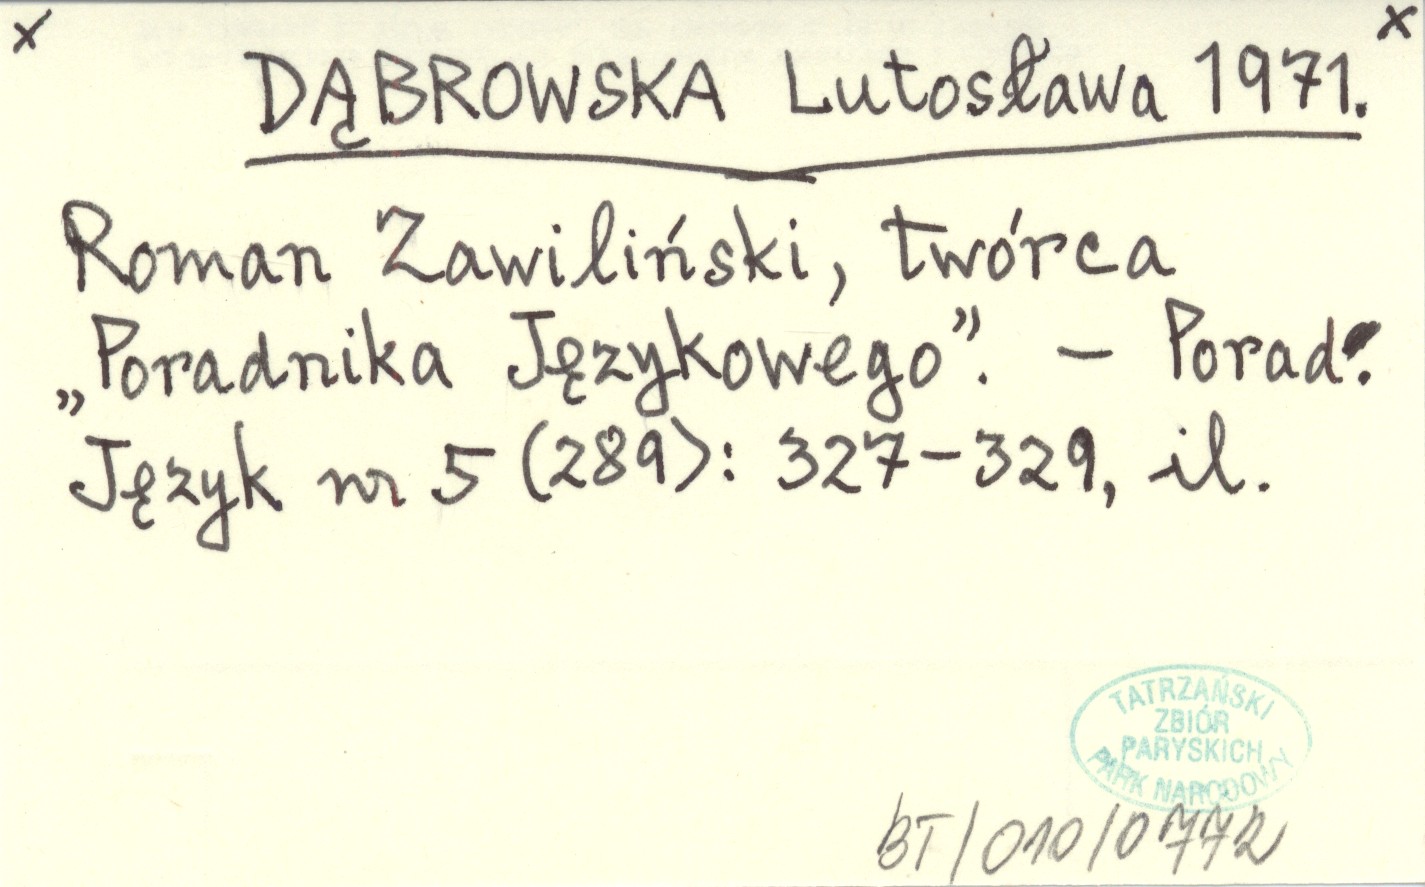 x x
DĄBROWSKA Lutosława 1971.
Roman Zawiliński, twórca
„Poradnika Językowego”. – Porad.
Język nr 5 (289): 327–329, il.
TATRZAŃSKI
ZBIÓR
PARYSKICH
PARK NARODOWY
BT/010/0772